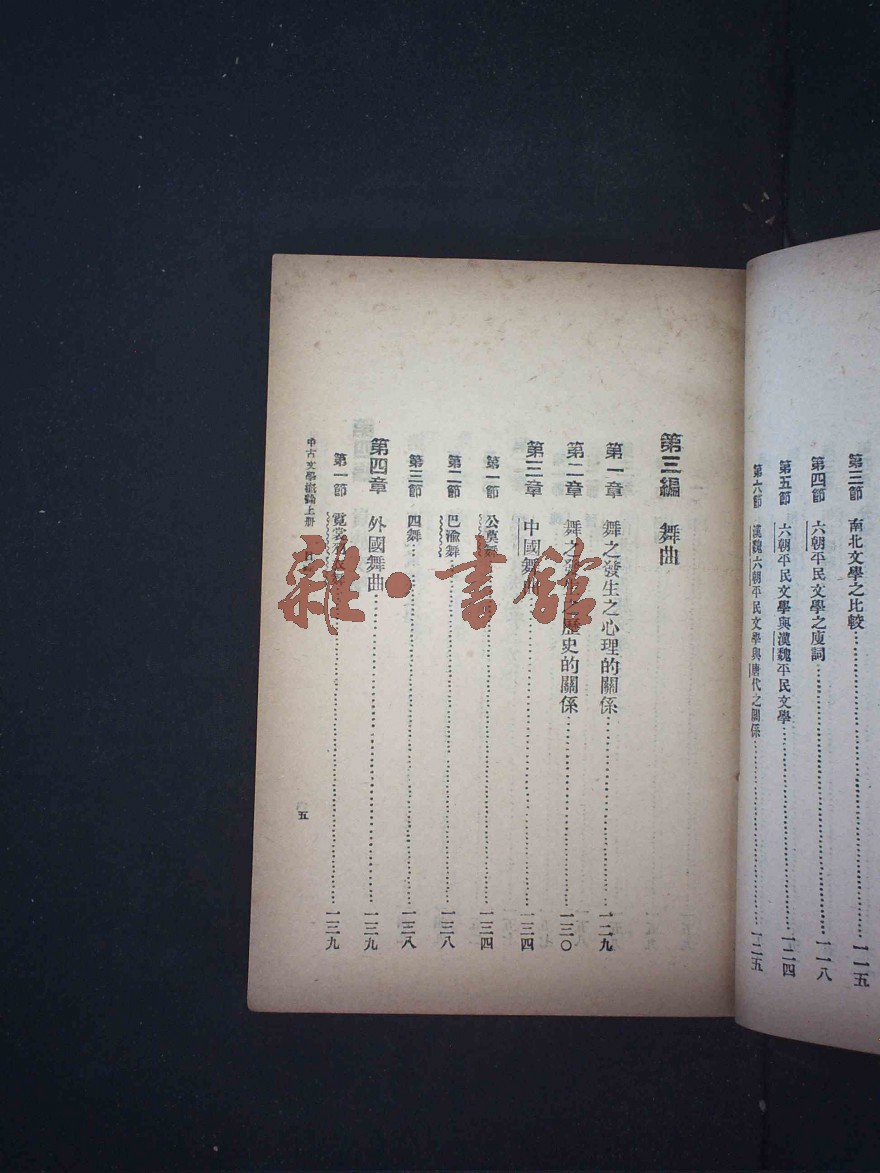 第三節 南北文學之比較……一一五
第四節 六朝平民文學之庾詞……一一八
第五節 六朝平民文學與漢魏平民文學……一二四
第六節 漢魏六朝平民文學與唐代之關係……一二五
第三編 舞曲
第一章 舞之發生之心理的關係……一二九
第二章 舞之發生之歷史的關係……一三〇
第三章 中國舞曲……一三四
第一節 公莫舞……一三四
第二節 巴渝舞……一三八
第三節 四舞……一三八
第四章 外國舞曲……一三九
第一節 霓裳……一三九
中古文學概論上冊 目
五
雜·書館